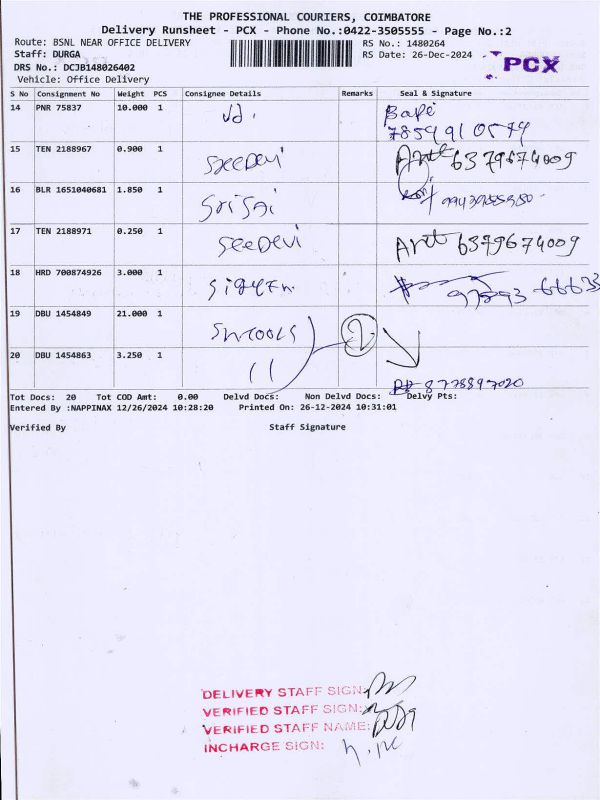 THE PROFESSIONAL COURIERS, COIMBATORE
Delivery Runsheet - PCX - Phone No.:0422-3505555 - Page No.:2
Route: BSNL NEAR OFFICE DELIVERY RS No.: 1480264
Staff: DURGA RS Date: 26-Dec-2024 PCX
DRS No.: DCJB148026402
Vehicle: Office Delivery
S No Consignment No Weight PCS Consignee Details Remarks Seal & Signature
14 PNR 75837 10.000 1
15 TEN 2188967 0.900 1 sreedevi 6379674009
16 BLR 1651040681 1.850 1 Sri Sai
17 TEN 2188971 0.250 1 seedevi 6379674009
18 HRD 700874926 3.000 1
19 DBU 1454849 21.000 1 2
20 DBU 1454863 3.250 1 11
8778897020
Tot Docs: 20 Tot COD Amt: 0.00 Delvd Docs: Non Delvd Docs: Delvy Pts:
Entered By :NAPPINAX 12/26/2024 10:28:20 Printed On: 26-12-2024 10:31:01
Verified By Staff Signature
DELIVERY STAFF SIGN:
VERIFIED STAFF SIGN:
VERIFIED STAFF NAME:
INCHARGE SIGN: